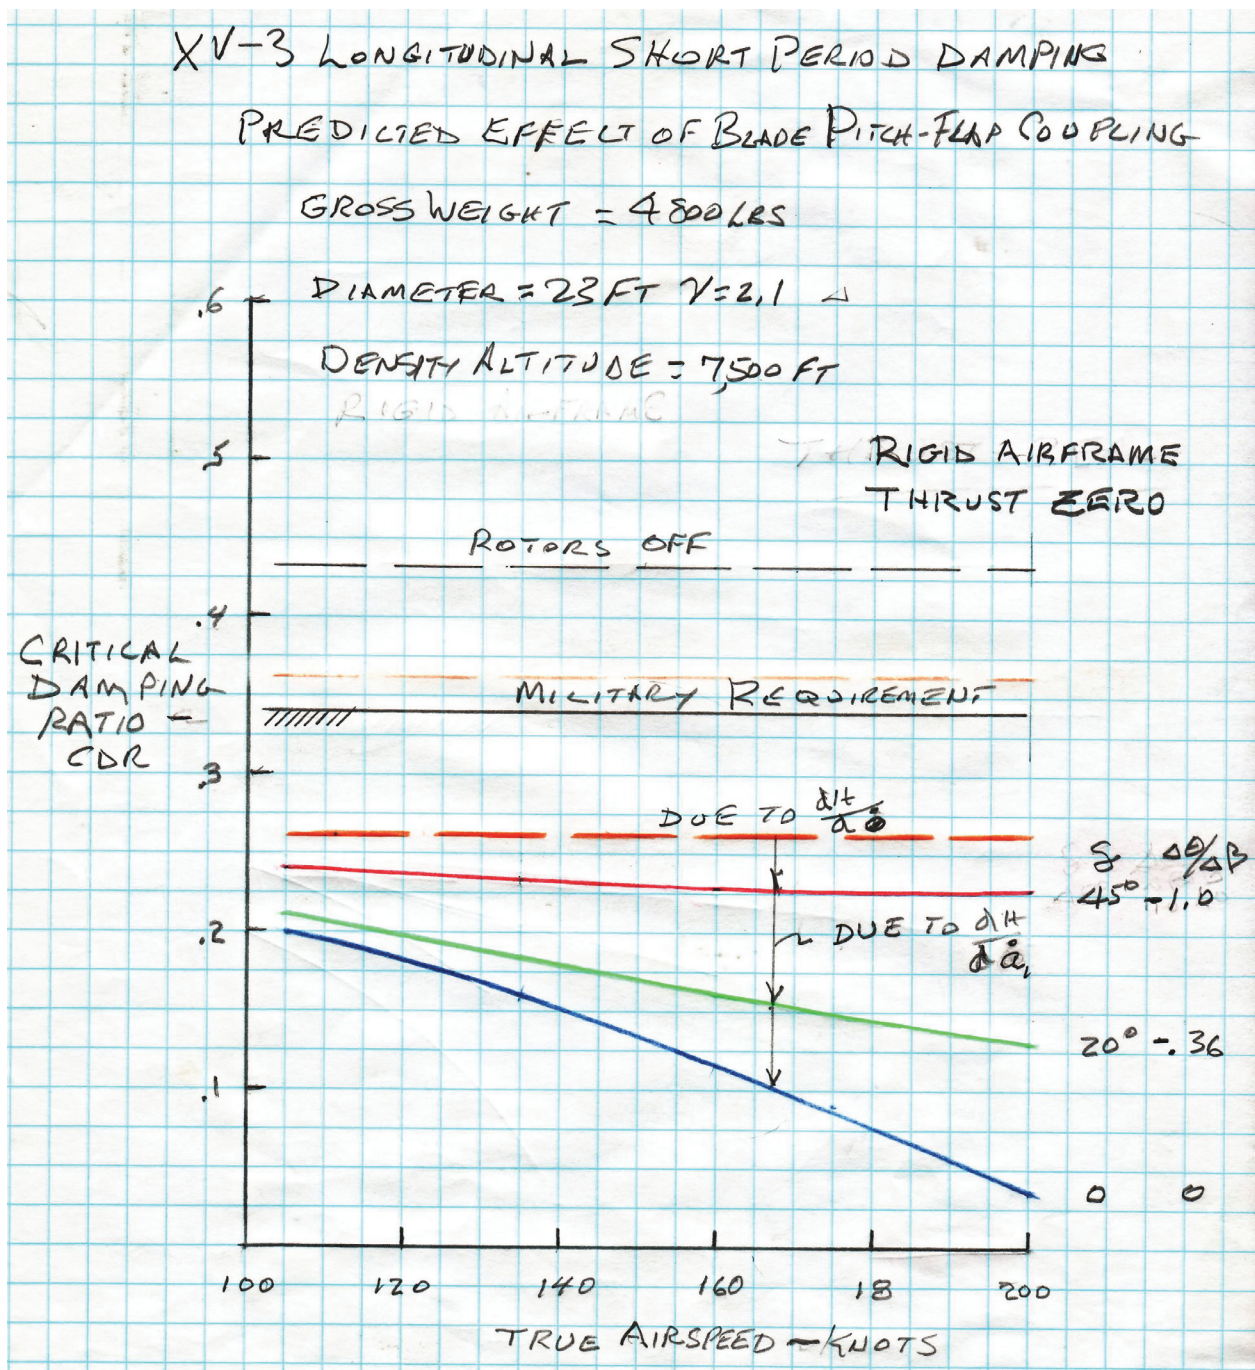 XV-3 LONGITUDINAL SHORT PERIOD DAMPING
PREDICTED EFFECT OF BLADE PITCH-FLAP COUPLING
GROSS WEIGHT = 4800 LBS
DIAMETER = 23 FT γ = 2.1
DENSITY ALTITUDE = 7,500 FT
RIGID AIRFRAME
RIGID AIRFRAME
THRUST ZERO
ROTORS OFF
MILITARY REQUIREMENT
CRITICAL
DAMPING
RATIO -
CDR
.6
.5
.4
.3
.2
.1
DUE TO
DUE TO dH
Δθ/ΔB
45° -1.0
20° -.36
0 0
100 120 140 160 18 200
TRUE AIRSPEED - KNOTS